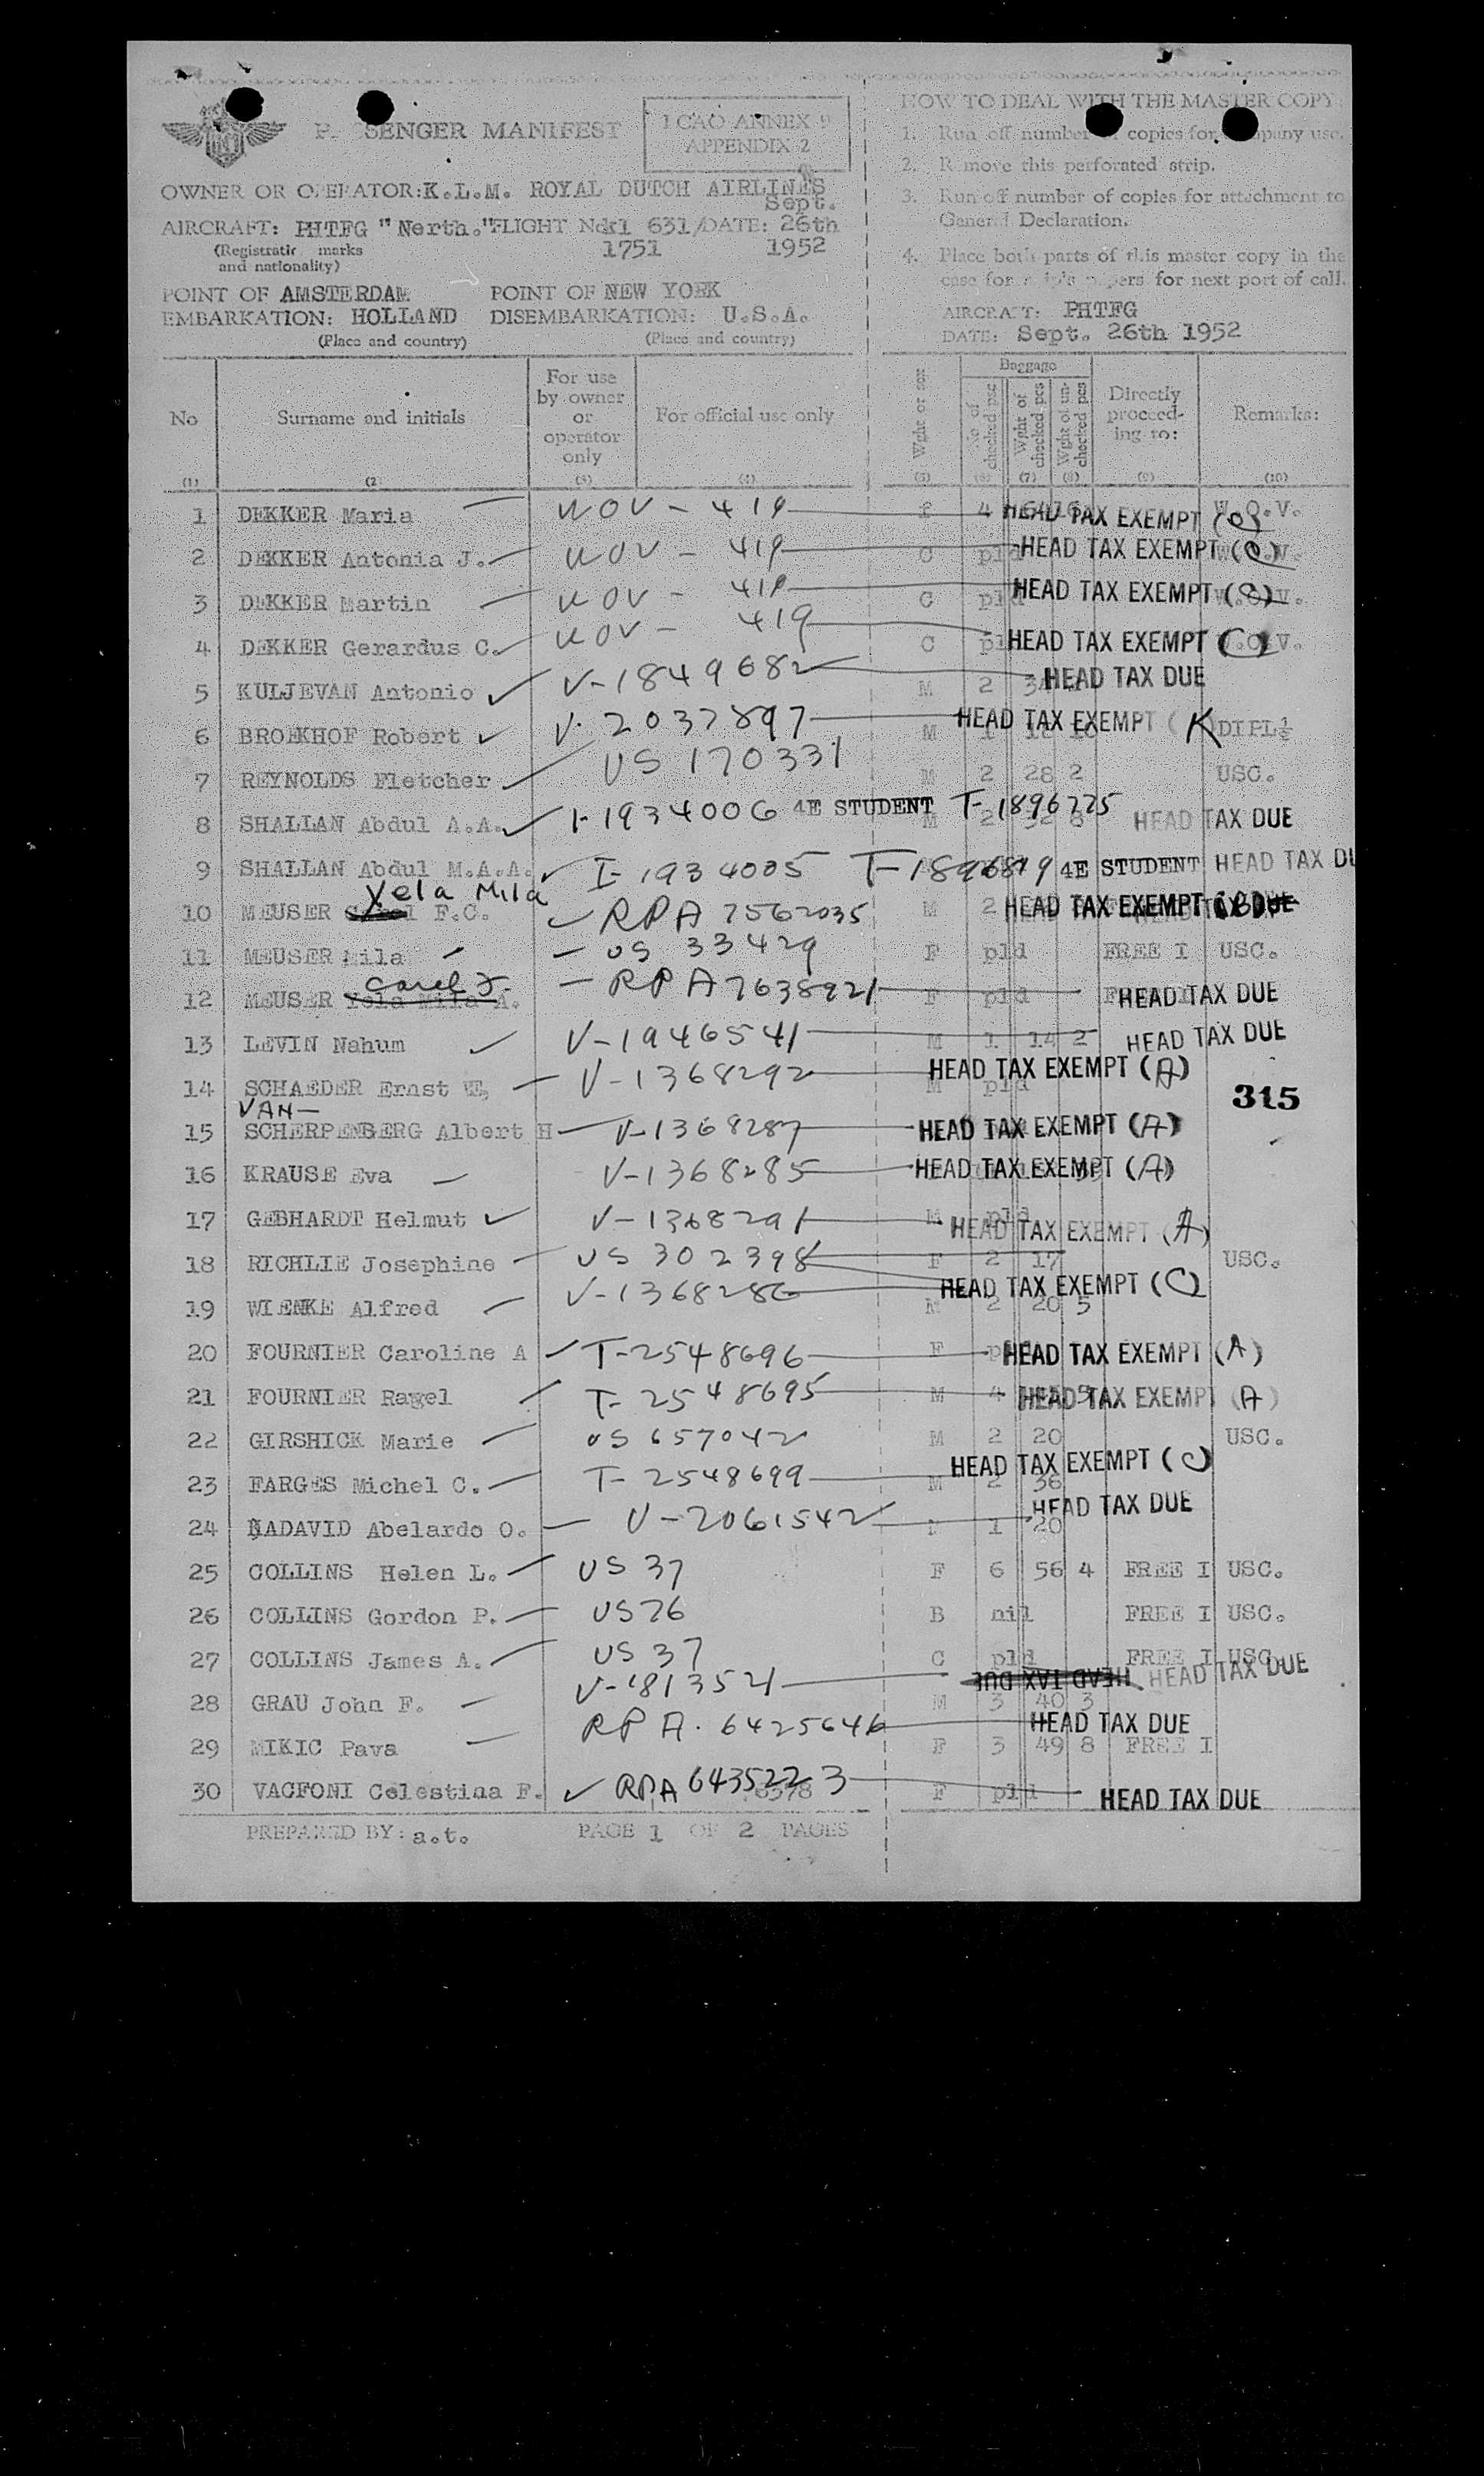 PASSENGER MANIFEST
ICAO ANNEX 9
APPENDIX 2
OWNER OR OPERATOR: K.L.M. ROYAL DUTCH AIRLINES
Sept.
AIRCRAFT: PHTFG "Nerth." FLIGHT No kl 631/ DATE: 26th
(Registratio marks and nationality) 1751 1952
POINT OF EMBARKATION: AMSTERDAM HOLLAND
(Place and country)
POINT OF DISEMBARKATION: NEW YORK U.S.A.
(Place and country)
HOW TO DEAL WITH THE MASTER COPY
1. Run off number of copies for company use.
2. Remove this perforated strip.
3. Run off number of copies for attachment to
General Declaration.
4. Place both parts of this master copy in the
case for ship's papers for next port of call.
AIRCRAFT: PHTFG
DATE: Sept. 26th 1952
No (1)
Surname and initials (2)
For use by owner or operator only (3)
For official use only (4)
Wght or sex (5)
Baggage
No of checked pcs (6)
Wght of checked pcs (7)
Wght of un-checked pcs (8)
Directly proceed-ing to: (9)
Remarks: (10)
1 DEKKER Maria WOV - 419 F 4 HEAD TAX EXEMPT (C) W.O.V.
2 DEKKER Antonia J. WOV - 419 C pld HEAD TAX EXEMPT (C) W.O.V.
3 DEKKER Martin WOV - 419 C pld HEAD TAX EXEMPT (C) W.O.V.
4 DEKKER Gerardus C. WOV - 419 C pld HEAD TAX EXEMPT (C) W.O.V.
5 KULJEVAN Antonio V-1849682 M 2 HEAD TAX DUE
6 BROEKHOF Robert V-2037897 M 1 18 10 HEAD TAX EXEMPT (K) DIPL½
7 REYNOLDS Fletcher US 170331 M 2 28 2 USC.
8 SHALLAN Abdul A.A. I-1934006 4E STUDENT T-1896225 M 2 32 8 HEAD TAX DUE
9 SHALLAN Abdul M.A.A. I-1934005 T-1896819 4E STUDENT HEAD TAX DU
Yela Mila
10 MEUSER Carel F.C. RPA 7562035 M 2 HEAD TAX EXEMPT (B) DUE
11 MEUSER Mila US 33429 F pld FREE I USC.
Carel F.
12 MEUSER Yela Mila A. RPA 7638921 F pld HEAD TAX DUE
13 LEVIN Nahum V-1946541 M 1 14 2 HEAD TAX DUE
14 SCHAEDER Ernst W, V-1368292 M pld HEAD TAX EXEMPT (A)
315
VAN
15 SCHERPENBERG Albert H V-1368287 HEAD TAX EXEMPT (A)
16 KRAUSE Eva V-1368285 HEAD TAX EXEMPT (A)
17 GEBHARDT Helmut V-1368291 M pld HEAD TAX EXEMPT (A)
18 RICHLIE Josephine US 302398 F 2 17 USC.
19 WIENKE Alfred V-1368286 M 2 20 5 HEAD TAX EXEMPT (C)
20 FOURNIER Caroline A T-2548696 F HEAD TAX EXEMPT (A)
21 FOURNIER Ragel T-2548695 M 4 HEAD TAX EXEMPT (A)
22 GIRSHICK Marie US 657042 M 2 20 USC.
23 FARGES Michel C. T-2548699 M 2 36 HEAD TAX EXEMPT (C)
24 NADAVID Abelardo O. V-2061542 1 20 HEAD TAX DUE
25 COLLINS Helen L. US 37 F 6 56 4 FREE I USC.
26 COLLINS Gordon P. US 26 B nil FREE I USC.
27 COLLINS James A. US 37 C pld FREE I USC.
28 GRAU John F. V-181352 M 3 40 3 HEAD TAX DUE HEAD TAX DUE
29 MIKIC Pava RPA. 6425646 F 3 49 8 FREE I HEAD TAX DUE
30 VACFONI Celestina F. RPA 6435223 6378 F pld HEAD TAX DUE
PREPARED BY: a.t. PAGE 1 OF 2 PAGES